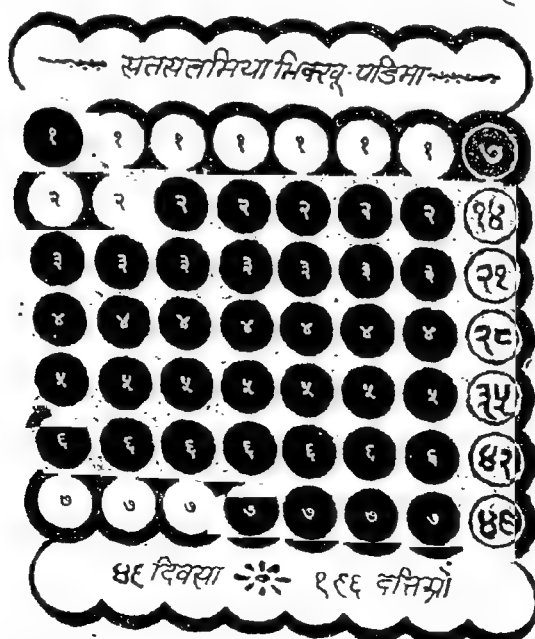 सतसतमिया भिक्खू-पडिमा
१ १ १ १ १ १ १ ७
२ २ २ २ २ २ २ १४
३ ३ ३ ३ ३ ३ ३ २१
४ ४ ४ ४ ४ ४ ४ २८
५ ५ ५ ५ ५ ५ ५ ३५
६ ६ ६ ६ ६ ६ ६ ४२
७ ७ ७ ७ ७ ७ ७ ४९
४९ दिवसा १९६ दत्तिओ